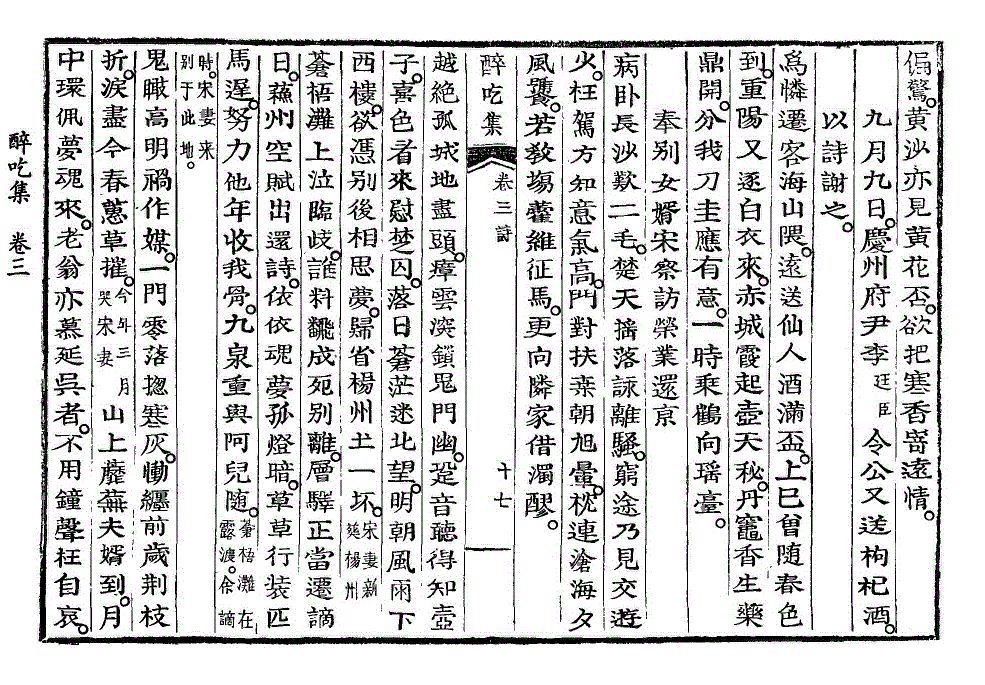 偏驚黄沙亦見黄花否欲把寒香寄遠情
九月九日慶州府尹李廷臣令公又送枸杞酒
以詩謝之
爲憐遷客海山隈遠送仙人酒滿盃上巳曾随春色
到重陽又逐白衣來赤城霞起壺天秘丹竈香生藥
鼎開分我刀圭應有意一時乘鶴向瑤臺
奉別女婿宋察訪榮業還京
病卧長沙歎二毛楚天搖落詠離騷窮途乃見交遊
少枉駕方知意氣高門對扶桒朝旭暈枕連滄海夕
風饕若教塲藿維征馬更向隣家借濁醪
醉吃集 卷三 詩 十七
越絶孤城地盡頭瘴雲深鎖鬼門幽跫音聽得知壺
子喜色看來慰楚囚落日蒼茫迷北望明朝風雨下
西樓欲憑別後相思夢歸省楊州土一坏宋妻新葬楊州
蒼梧灘上泣臨歧誰料飜成死別離層驛正當遷謫
日蘓州空賦出還詩依依魂夢孤燈暗草草行装匹
馬遲努力他年收我骨九泉重與阿兒随蒼梧灘在露渡余謫
時宋妻来別于此地
鬼瞰高明禍作媒一門零落揔寒灰慟纒前歲荆枝
折淚盡今春蕙草摧今年三月哭宋妻山上蘼蕪夫婿到月
中環佩夢魂來老翁亦慕延吳者不用鐘聲枉自哀
醉吃集 卷三